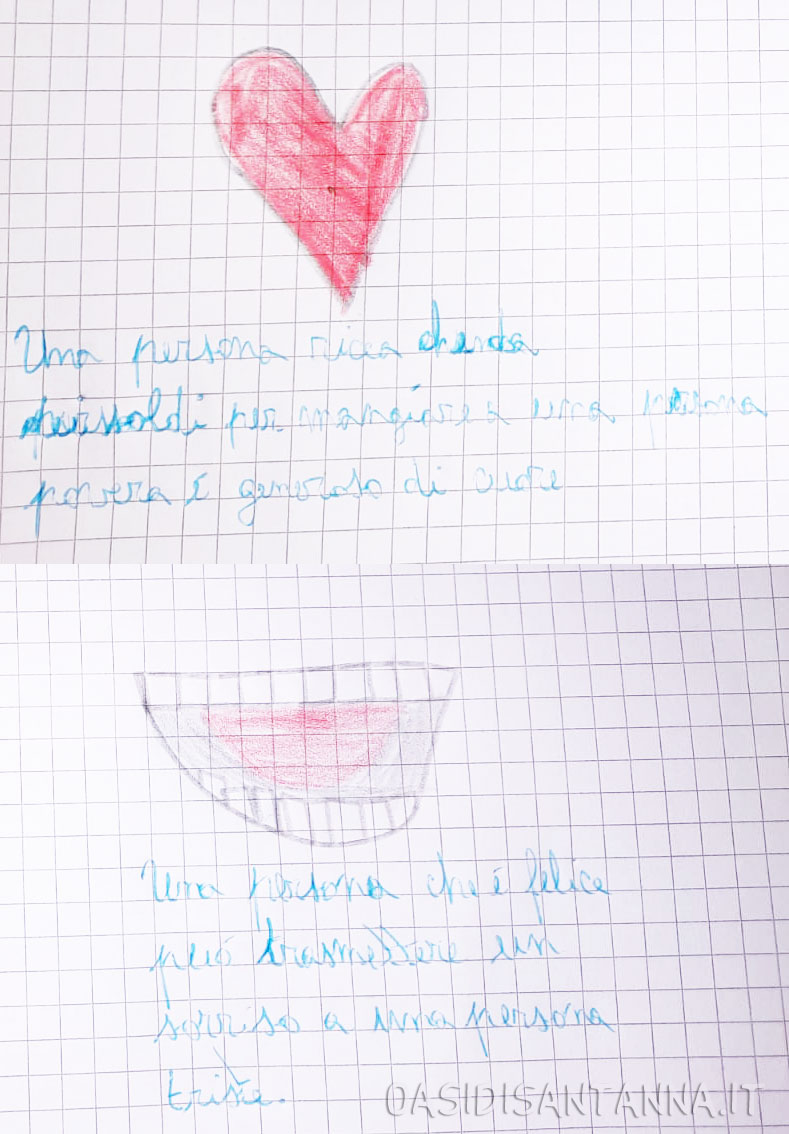 Una persona ricca che da
per mangiare a una persona
povera é generoso di cuore
Una persona che é felice
può trasmettere un
sorriso a una persona
triste.
OASIDISANTANNA.IT